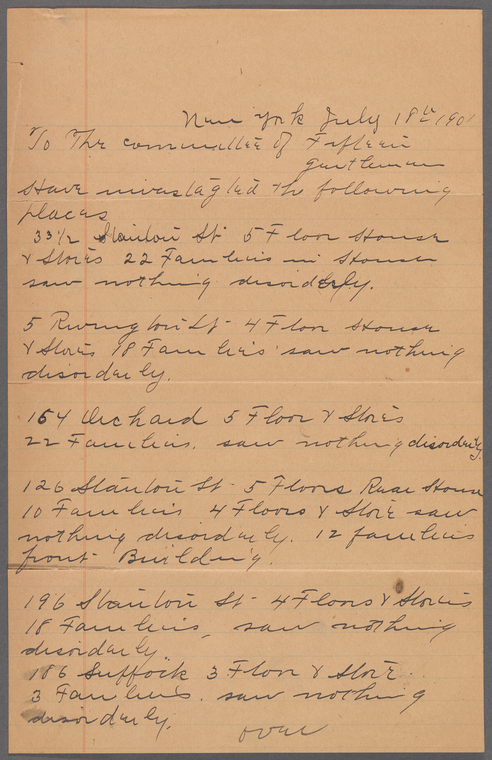 New York July 18th 1901
To The committee of Fifteen
gentlemen
Have investagated the following
places
33 1/2 Stanton St 5 Floor House
& Stores 22 Families in House
saw nothing disorderly.
5 Rivington St - 4 Floor House
& Stores 18 Families saw nothing
disorderly.
154 Orchard 5 Floor & Stores
22 Families. saw nothing disorderly.
126 Stanton St - 5 Floors Rear House
10 Families 4 Floors & Store saw
nothing disorderly. 12 families
front Building.
196 Stanton St - 4 Floors & Stores
18 Families, saw nothing
disorderly
186 Suffolk 3 Floor & Store
3 Families. saw nothing
disorderly.
over